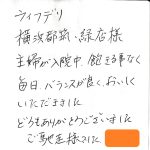 ライフデリ
横浜都筑・緑店様
主婦が入院中、飽きる事なく
毎日、バランスが良く、おいしく
いただきました
どうもありがとうございました
ご馳走様でした